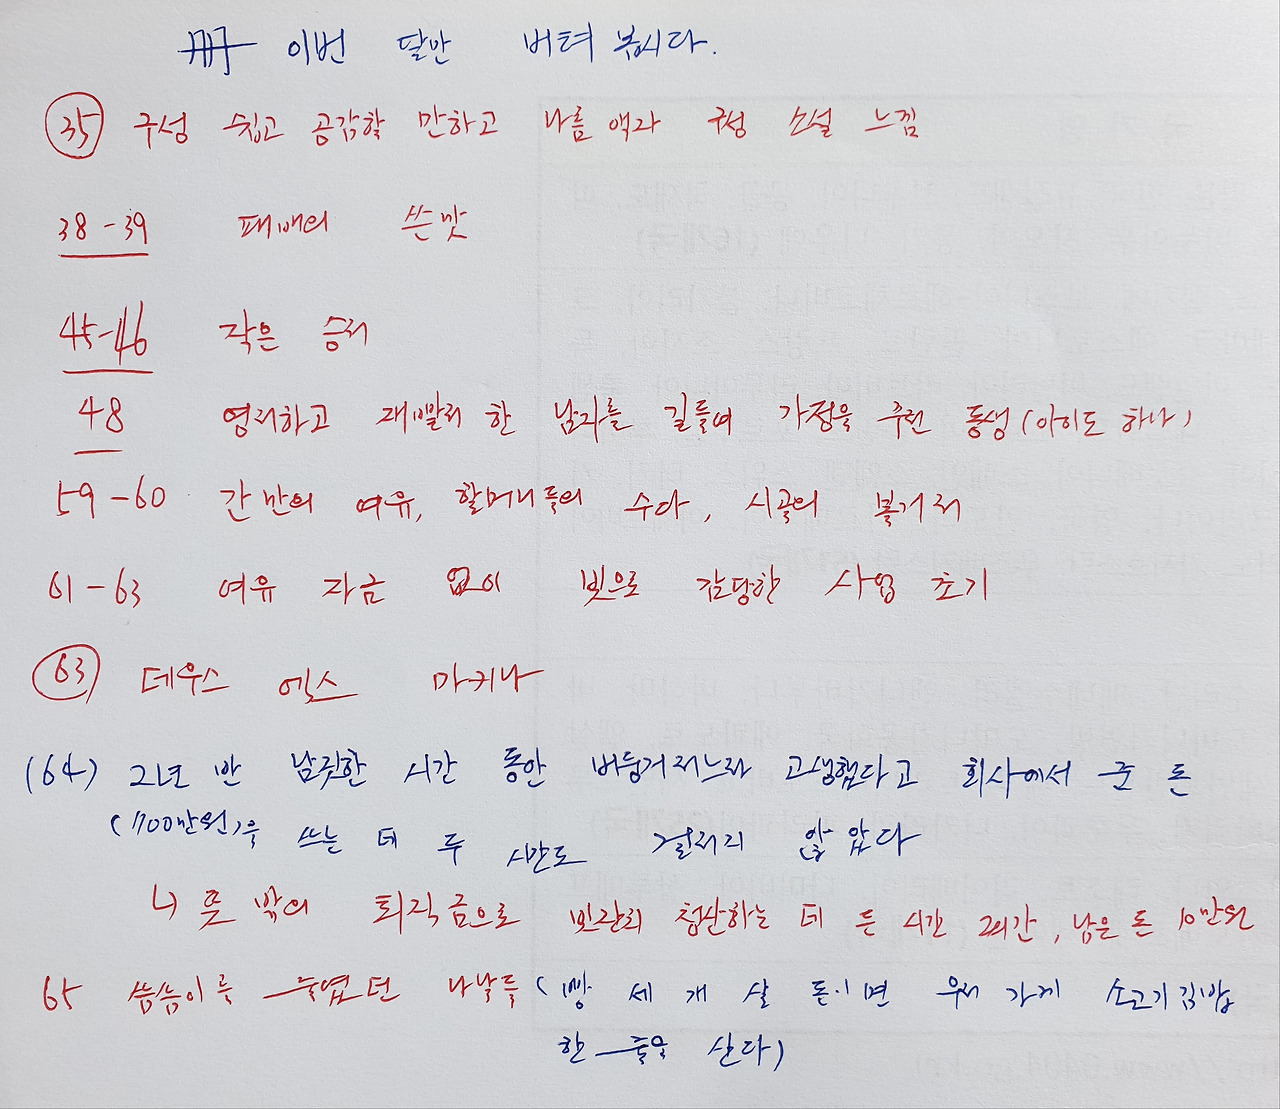 冊 이번 달만 버텨 봅시다.
35 구성 쉽고 공감할 만하고 나름 액자 구성 소설 느낌
38-39 패배의 쓴맛
45-46 작은 승리
48 영리하고 재빨리 한 남자를 길들여 가정을 꾸린 동생(아이도 하나)
59-60 간만의 여유, 할머니들의 수다, 시골의 볼거리
61-63 여유 자금 없이 빚으로 감당한 사업 초기
63 데우스 엑스 마키나
(64) 2년 반 남짓한 시간 동안 버둥거리느라 고생했다고 회사에서 준 돈
(700만원)을 쓰는 데 두 시간도 걸리지 않았다
↳ 뜻 밖의 퇴직금으로 빚잔치 청산하는 데 든 시간 2시간, 남은 돈 10만원
65 씀씀이를 줄였던 나날들(빵 세 개 살 돈이면 우리 가게 소고기김밥
한 줄을 산다)